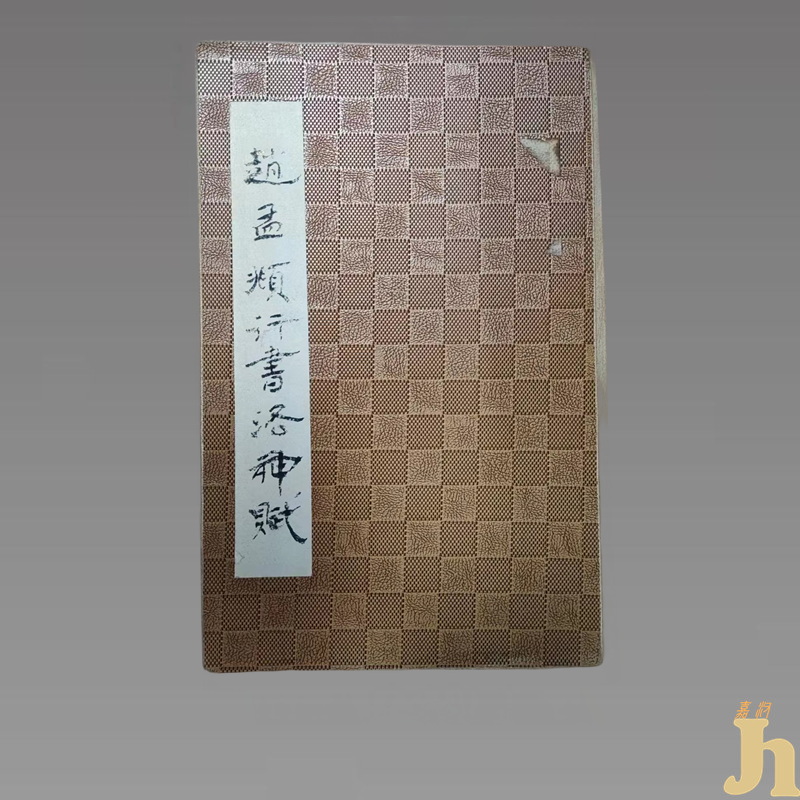 趙孟頫行書洛神賦
jh